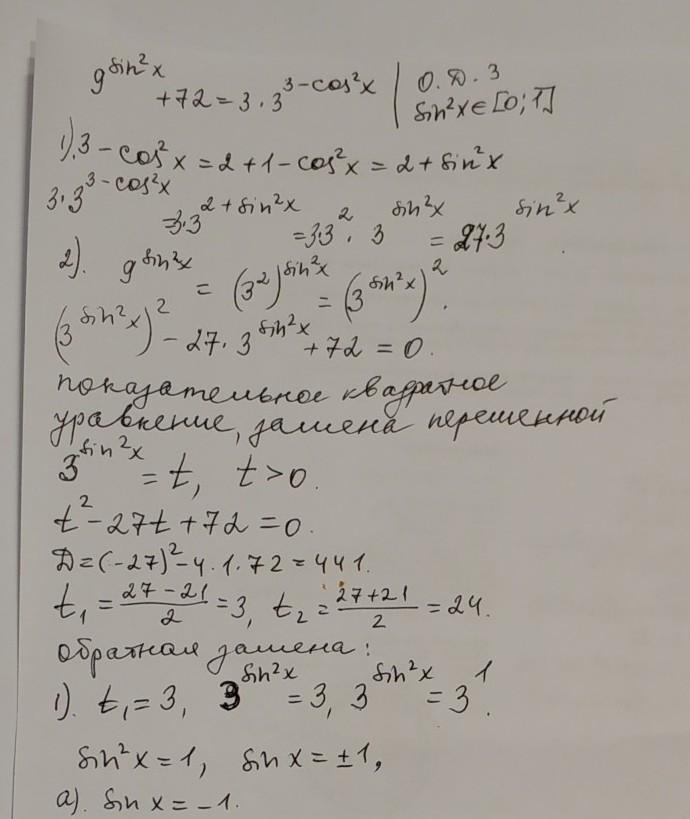 9^(sin²x) + 72 = 3 · 3^(3-cos²x) | О.Д.З
sin²x ∈ [0; 1]
1). 3 - cos²x = 2 + 1 - cos²x = 2 + sin²x
3 · 3^(3-cos²x) = 3·3^(2+sin²x) = 3·3² · 3^(sin²x) = 27·3^(sin²x)
2). 9^(sin²x) = (3²)^(sin²x) = (3^(sin²x))².
(3^(sin²x))² - 27 · 3^(sin²x) + 72 = 0.
показательное квадратное
уравнение, замена переменной
3^(sin²x) = t, t > 0.
t² - 27t + 72 = 0.
Д = (-27)² - 4 · 1 · 72 = 441.
t₁ = (27 - 21)/2 = 3, t₂ = (27 + 21)/2 = 24.
обратная замена:
1). t₁ = 3, 3^(sin²x) = 3, 3^(sin²x) = 3¹.
sin²x = 1, sin x = ±1,
а). sin x = -1.